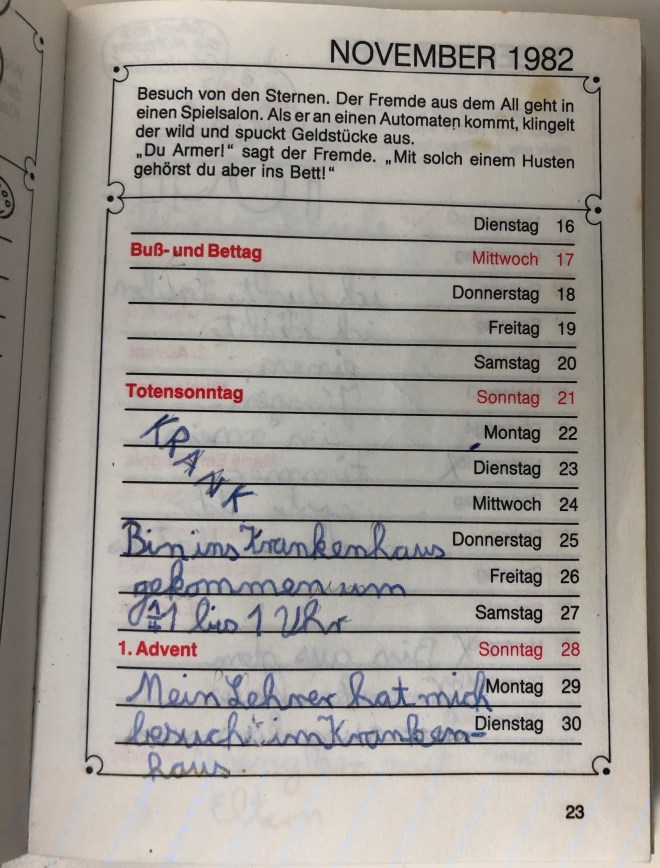 NOVEMBER 1982
Besuch von den Sternen. Der Fremde aus dem All geht in
einen Spielsalon. Als er an einen Automaten kommt, klingelt
der wild und spuckt Geldstücke aus.
„Du Armer!“ sagt der Fremde. „Mit solch einem Husten
gehörst du aber ins Bett!“
Dienstag 16
Buß- und Bettag Mittwoch 17
Donnerstag 18
Freitag 19
Samstag 20
Totensonntag Sonntag 21
KRANK
Montag 22
Dienstag 23
Mittwoch 24
Bin ins Krankenhaus Donnerstag 25
gekommen um Freitag 26
1 bis 1 Uhr Samstag 27
1. Advent Sonntag 28
Mein Lehrer hat mich Montag 29
besucht im Kranken- Dienstag 30
haus.
23